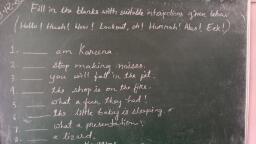 Fill in the blanks with suitable interjections given below
(Hello! Hush! Wow! Lookout, Oh! Hurrah! Alas! Eek!)
1. ____ am Kareena.
2. ____ stop making noises.
3. ____ you will fall in the pit.
4. ____ the shop is on the fire.
5. ____ what a fun they had!
6. ____ the little baby is sleeping.
7. ____ what a presentation!
8. ____ a lizard.